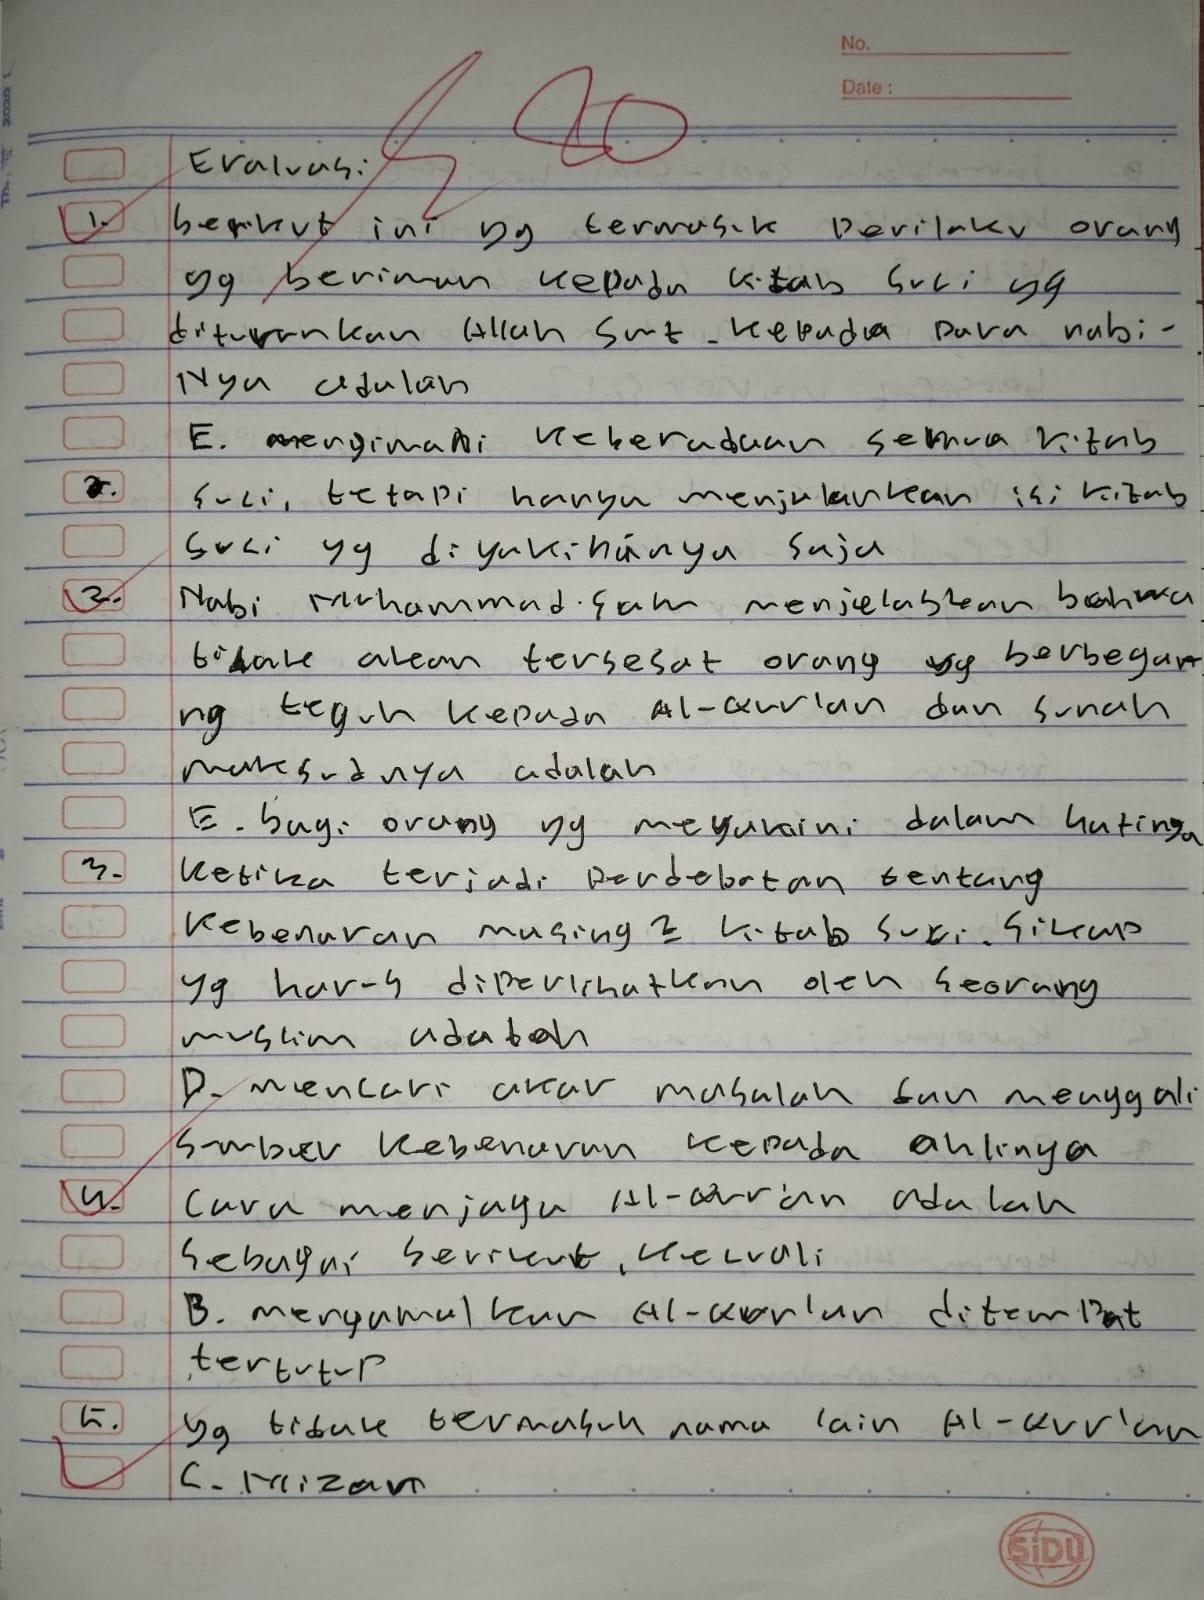 No.
Date :
80
Evaluasi
1. berikut ini yg termasuk perilaku orang
yg beriman kepada kitab suci yg
diturunkan Allah Swt. kepada para nabi-
Nya adalah
E. mengimani keberadaan semua kitab
suci, tetapi hanya menjalankan isi kitab
suci yg diyakininya saja
2. Nabi Muhammad saw menjelaskan bahwa
tidak akan tersesat orang yg berbegan
ng teguh kepada Al-Qur'an dan sunah
maksudnya adalah
E. bagi orang yg meyakini dalam hatinya
3. Ketika terjadi perdebatan tentang
kebenaran masing2 kitab suci. Sikap
yg harus diperlihatkan oleh seorang
muslim adalah
D. mencari akar masalah dan menggali
sumber kebenaran kepada ahlinya
4. Cara menjaga Al-Qur'an adalah
sebagai berikut, kecuali
B. mengamalkan Al-Qur'an ditempat
tertutup
5. yg tidak termasuk nama lain Al-Qur'an
C. Mizan
SiDU